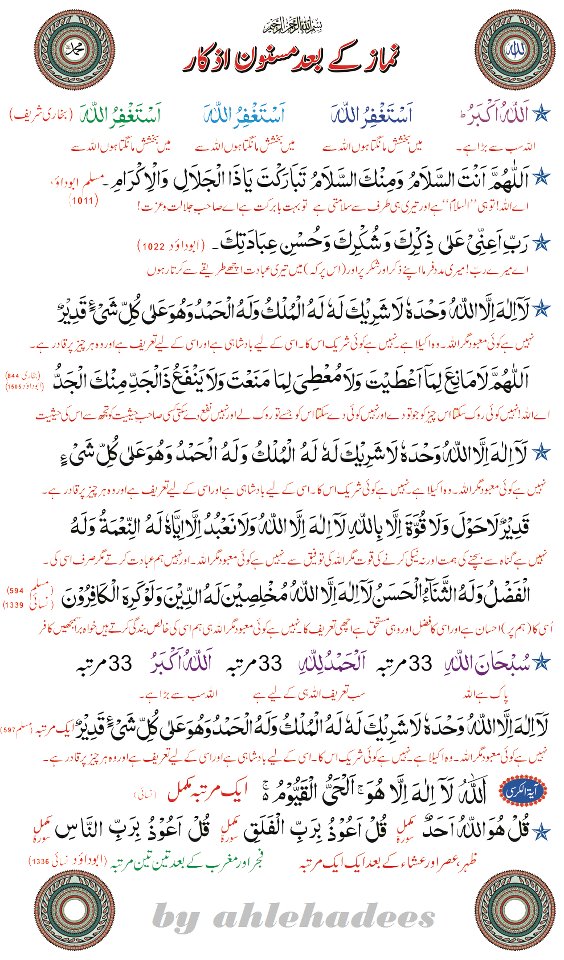 بسم الله الرحمن الرحيم
الله
محمد
نماز کے بعد مسنون اذکار
اَللّٰهُ اَکْبَرُ اَسْتَغْفِرُ اللّٰهَ اَسْتَغْفِرُ اللّٰهَ اَسْتَغْفِرُ اللّٰهَ (بخاری شریف)
اللہ سب سے بڑا ہے۔ میں بخشش مانگتا ہوں اللہ سے میں بخشش مانگتا ہوں اللہ سے میں بخشش مانگتا ہوں اللہ سے
اَللّٰهُمَّ اَنْتَ السَّلَامُ وَمِنْكَ السَّلَامُ تَبَارَكْتَ يَاذَا الْجَلَالِ وَالْاِكْرَامِ۔ مسلم ابوداؤد (1011)
اے اللہ! تو ہی ''السلام'' ہے اور تیری ہی طرف سے سلامتی ہے تو بہت بابرکت ہے اے صاحب جلالت و عزت!
رَبِّ اَعِنِّيْ عَلٰى ذِكْرِكَ وَشُكْرِكَ وَحُسْنِ عِبَادَتِكَ۔ (ابوداؤد 1022)
اے میرے رب! میری مدد فرما اپنے ذکر اور شکر پر اور (اس پر کہ) میں تیری عبادت اچھے طریقے سے کرتا رہوں
لَآ اِلٰهَ اِلَّا اللّٰهُ وَحْدَهٗ لَا شَرِيْكَ لَهٗ لَهُ الْمُلْكُ وَلَهُ الْحَمْدُ وَهُوَ عَلٰى كُلِّ شَيْءٍ قَدِيْرٌ
نہیں ہے کوئی معبود مگر اللہ۔ وہ اکیلا ہے۔ نہیں ہے کوئی شریک اس کا۔ اسی کے لیے بادشاہی ہے اور اسی کے لیے تعریف ہے اور وہ ہر چیز پر قادر ہے۔
اَللّٰهُمَّ لَا مَانِعَ لِمَآ اَعْطَيْتَ وَلَا مُعْطِيَ لِمَا مَنَعْتَ وَلَا يَنْفَعُ ذَا الْجَدِّ مِنْكَ الْجَدُّ (بخاری 844 ابوداؤد 1505)
اے اللہ! نہیں کوئی روک سکتا اس چیز کو جو تو دے اور نہیں کوئی دے سکتا اس کو جسے تو روک لے اور نہیں نفع دے سکتی کسی صاحب حیثیت کو تجھ سے اس کی حیثیت
لَآ اِلٰهَ اِلَّا اللّٰهُ وَحْدَهٗ لَا شَرِيْكَ لَهٗ لَهُ الْمُلْكُ وَلَهُ الْحَمْدُ وَهُوَ عَلٰى كُلِّ شَيْءٍ
نہیں ہے کوئی معبود مگر اللہ۔ وہ اکیلا ہے۔ نہیں ہے کوئی شریک اس کا۔ اسی کے لیے بادشاہی ہے اور اسی کے لیے تعریف ہے اور وہ ہر چیز پر قادر ہے۔
قَدِيْرٌ لَا حَوْلَ وَلَا قُوَّةَ اِلَّا بِاللّٰهِ لَآ اِلٰهَ اِلَّا اللّٰهُ وَلَا نَعْبُدُ اِلَّآ اِيَّاهُ لَهُ النِّعْمَةُ وَلَهُ
نہیں ہے گناہ سے بچنے کی ہمت اور نہ نیکی کرنے کی قوت مگر اللہ کی توفیق سے نہیں ہے کوئی معبود مگر اللہ۔ اور نہیں ہم عبادت کرتے مگر صرف اسی کی۔
الْفَضْلُ وَلَهُ الثَّنَآءُ الْحَسَنُ لَآ اِلٰهَ اِلَّا اللّٰهُ مُخْلِصِيْنَ لَهُ الدِّيْنَ وَلَوْ كَرِهَ الْكَافِرُوْنَ (مسلم 594 نسائی 1339)
اسی کا (ہم پر) احسان ہے اور اسی کا فضل اور وہی مستحق ہے اچھی تعریف کا۔ نہیں ہے کوئی معبود مگر اللہ ہی ہم اسی کی خالص بندگی کرتے ہیں خواہ برا سمجھیں کافر
سُبْحَانَ اللّٰهِ 33 مرتبہ اَلْحَمْدُ لِلّٰهِ 33 مرتبہ اَللّٰهُ اَكْبَرُ 33 مرتبہ
پاک ہے اللہ سب تعریف اللہ ہی کے لیے ہے اللہ سب سے بڑا ہے۔
لَآ اِلٰهَ اِلَّا اللّٰهُ وَحْدَهٗ لَا شَرِيْكَ لَهٗ لَهُ الْمُلْكُ وَلَهُ الْحَمْدُ وَهُوَ عَلٰى كُلِّ شَيْءٍ قَدِيْرٌ ایک مرتبہ (مسلم 597)
نہیں ہے کوئی معبود مگر اللہ۔ وہ اکیلا ہے۔ نہیں ہے کوئی شریک اس کا۔ اسی کے لیے بادشاہی ہے اور اسی کے لیے تعریف ہے اور وہ ہر چیز پر قادر ہے۔
آیۃ الکرسی اَللّٰهُ لَآ اِلٰهَ اِلَّا هُوَ ۚ اَلْحَيُّ الْقَيُّوْمُ ۚ ایک مرتبہ مکمل (نسائی)
قُلْ هُوَ اللّٰهُ اَحَدٌ مکمل سورہ قُلْ اَعُوْذُ بِرَبِّ الْفَلَقِ مکمل سورہ قُلْ اَعُوْذُ بِرَبِّ النَّاسِ مکمل سورہ
ظہر، عصر اور عشاء کے بعد ایک ایک مرتبہ فجر اور مغرب کے بعد تین تین مرتبہ (ابوداؤد نسائی 1336)
by ahlehadees